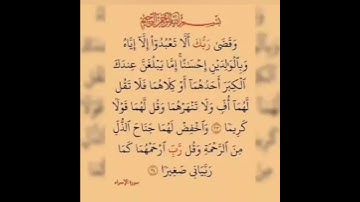 بِسْمِ اللَّهِ الرَّحْمَٰنِ الرَّحِيمِ
وَقَضَىٰ رَبُّكَ أَلَّا تَعْبُدُوٓا۟ إِلَّآ إِيَّاهُ
وَبِٱلْوَٰلِدَيْنِ إِحْسَٰنًا ۚ إِمَّا يَبْلُغَنَّ عِندَكَ
ٱلْكِبَرَ أَحَدُهُمَآ أَوْ كِلَاهُمَا فَلَا تَقُل
لَّهُمَآ أُفٍّ وَلَا تَنْهَرْهُمَا وَقُل لَّهُمَا قَوْلًا
كَرِيمًا ۝٢٣ وَٱخْفِضْ لَهُمَا جَنَاحَ ٱلذُّلِّ
مِنَ ٱلرَّحْمَةِ وَقُل رَّبِّ ٱرْحَمْهُمَا كَمَا
رَبَّيَانِى صَغِيرًا ۝٢٤
سورة الإسراء